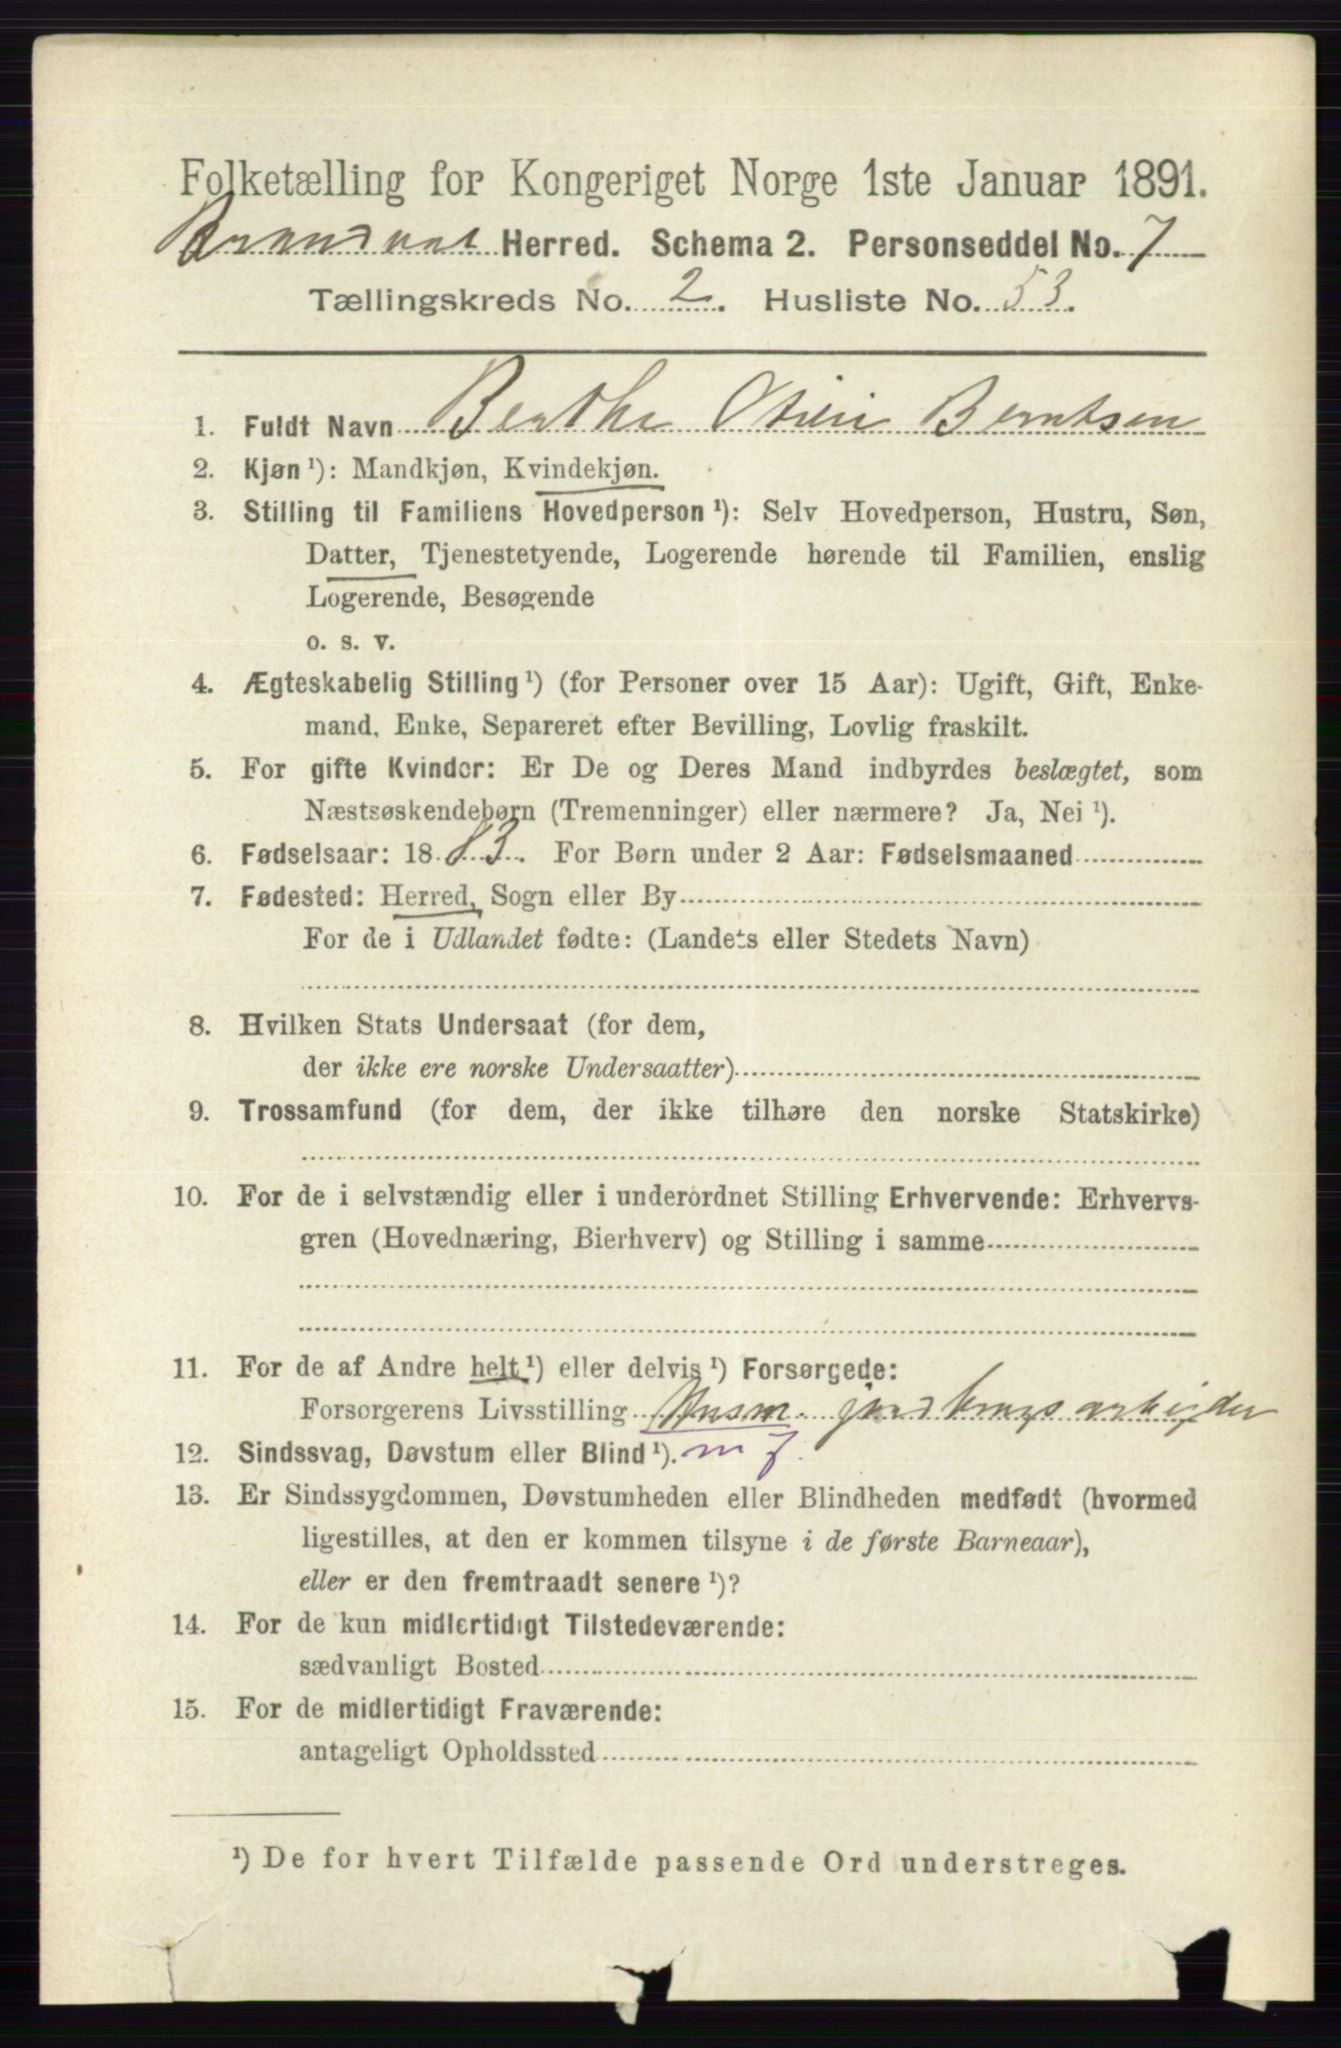 Folketælling for Kongeriget Norge 1ste Januar 1891.
Brandval Herred. Schema 2. Personseddel No. 7
Tællingskreds No. 2. Husliste No. 53.
1. Fuldt Navn Berthe Berntsen
2. Kjøn ¹): Mandkjøn, Kvindekjøn.
3. Stilling til Familiens Hovedperson ¹): Selv Hovedperson, Hustru, Søn,
Datter, Tjenestetyende, Logerende hørende til Familien, enslig
Logerende, Besøgende
o. s. v.
4. Ægteskabelig Stilling ¹) (for Personer over 15 Aar): Ugift, Gift, Enke-
mand, Enke, Separeret efter Bevilling, Lovlig fraskilt.
5. For gifte Kvinder: Er De og Deres Mand indbyrdes beslægtet, som
Næstsøskendebørn (Tremenninger) eller nærmere? Ja, Nei ¹).
6. Fødselsaar: 1883. For Børn under 2 Aar: Fødselsmaaned
7. Fødested: Herred, Sogn eller By
For de i Udlandet fødte: (Landets eller Stedets Navn)
8. Hvilken Stats Undersaat (for dem,
der ikke ere norske Undersaatter)
9. Trossamfund (for dem, der ikke tilhøre den norske Statskirke)
10. For de i selvstændig eller i underordnet Stilling Erhvervende: Erhvervs-
gren (Hovednæring, Bierhverv) og Stilling i samme
11. For de af Andre helt ¹) eller delvis ¹) Forsørgede:
Forsørgerens Livsstilling Husm. jordbrugsarbeider
12. Sindssvag, Døvstum eller Blind ¹). m f.
13. Er Sindssygdommen, Døvstumheden eller Blindheden medfødt (hvormed
ligestilles, at den er kommen tilsyne i de første Barneaar),
eller er den fremtraadt senere ¹)?
14. For de kun midlertidigt Tilstedeværende:
sædvanligt Bosted
15. For de midlertidigt Fraværende:
antageligt Opholdssted
¹) De for hvert Tilfælde passende Ord understreges.